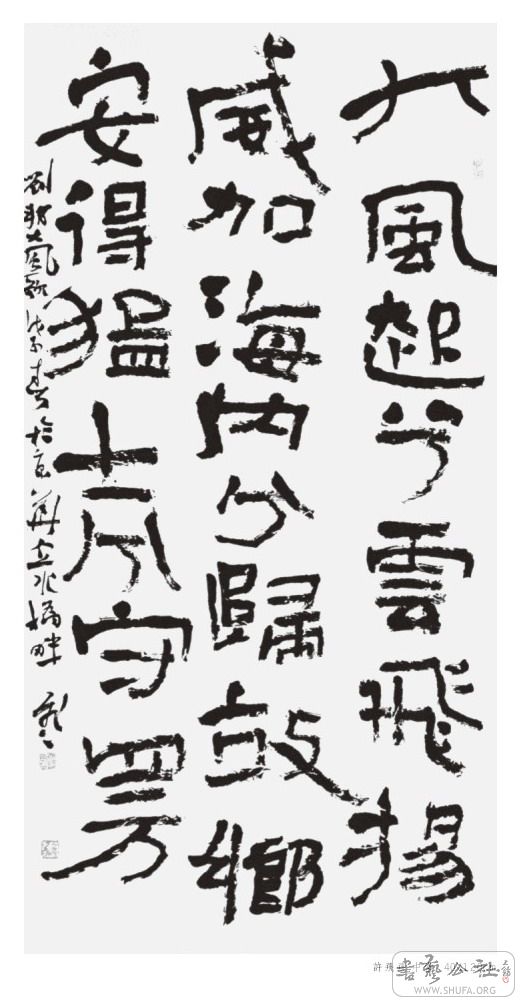 大風起兮雲飛揚
威加海內兮歸故鄉
安得猛士兮守四方
劉邦大風歌 戊子春於京華立水橋畔
書藝公社
WWW.SHUFA.ORG